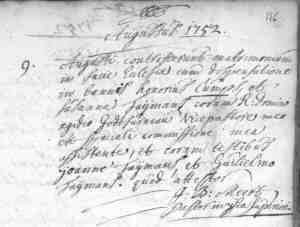 116
Augustus 1752.
9. Augusti contraxerunt matrimonium
in facie Ecclesiae cum dispensatione
in bannis Henricus Cumps et
Susanna Taymans coram R. domino
Egidio vicepastore meo
ex speciali commissione mea
assistente, et coram testibus
Joanne Taymans et Guilielmo
Taymans. quod attestor
J: B:
Pastor in